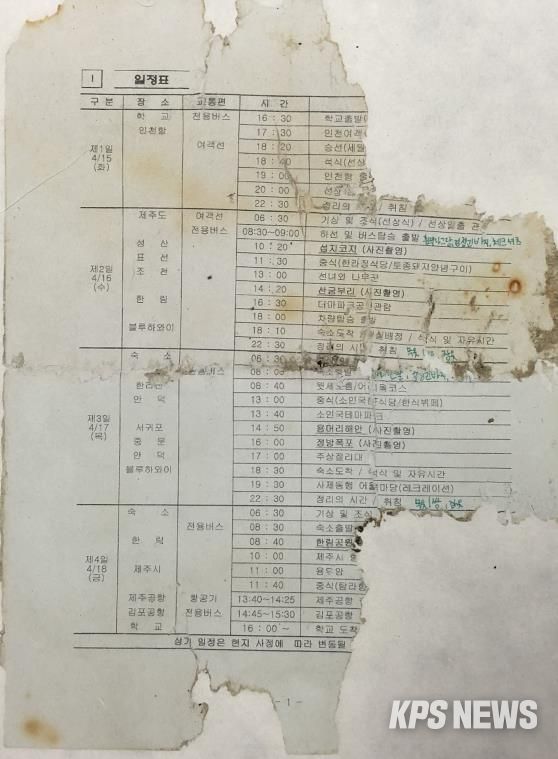 I 일정표
구 분 장 소 교통편 시 간
제1일 4/15 (화)
학 교 전용버스 16 : 30 학교출발
인천항 17 : 30 인천여객
여객선 18 : 20 승선(세월
18 : 40 석식(선상
19 : 00 인천항
20 : 00 선상
22 : 30 정리의 / 취침
제2일 4/16 (수)
제주도 여객선 06 : 30 기상 및 조식(선상식) / 선상일출 관
전용버스 08:30~09:00 하선 및 버스탑승 출발
성 산 10 : 20 섭지코지 (사진촬영)
표 선 11 : 30 중식(한라정식당/토종돼지양념구이)
조 천 13 : 00 선녀와 나무꾼
14 : 20 산굼부리 (사진촬영)
한 림 16 : 30 더마파크공연관람
18 : 00 차량탑승 출발
블루하와이 18 : 10 숙소도착 / 실배정 / 석식 및 자유시간
22 : 30 정리의 시간 / 취침
제3일 4/17 (목)
숙 소 06 : 30
08 : 00 숙소출발
한라산 08 : 40 코스
안 덕 13 : 00 중식(소인국 식당/한식뷔페)
13 : 40 소인국테마파크
서귀포 14 : 50 용머리해안 (사진촬영)
중 문 16 : 00 정방폭포 (사진촬영)
안 덕 17 : 00 주상절리대
블루하와이 18 : 30 숙소도착 / 석식 및 자유시간
19 : 30 사제동행 어울 마당(레크레이션)
22 : 30 정리의 시간 / 취침
제4일 4/18 (금)
숙 소 06 : 30 기상 및 조식
전용버스 08 : 30 숙소출발
한 림 08 : 40 한림공원
10 : 00 제주시
제주시 11 : 00 용두암
11 : 40 중식(탐라
제주공항 항공기 13:40~14:25 제주공항
김포공항 전용버스 14:45~15:30 김포공항
학 교 16 : 00 ~ 학교 도착
상기 일정은 현지 사정에 따라 변동될
- 1 -
KPS NEWS